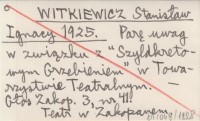 WITKIEWICZ Stanisław
Ignacy 1925. Parę uwag
w związku z "Szyldkretowym
Grzebieniem" w Towa-
rzystwie Teatralnym.
Głos Zakop. 3, nr 41.
Teatr w Zakopanem